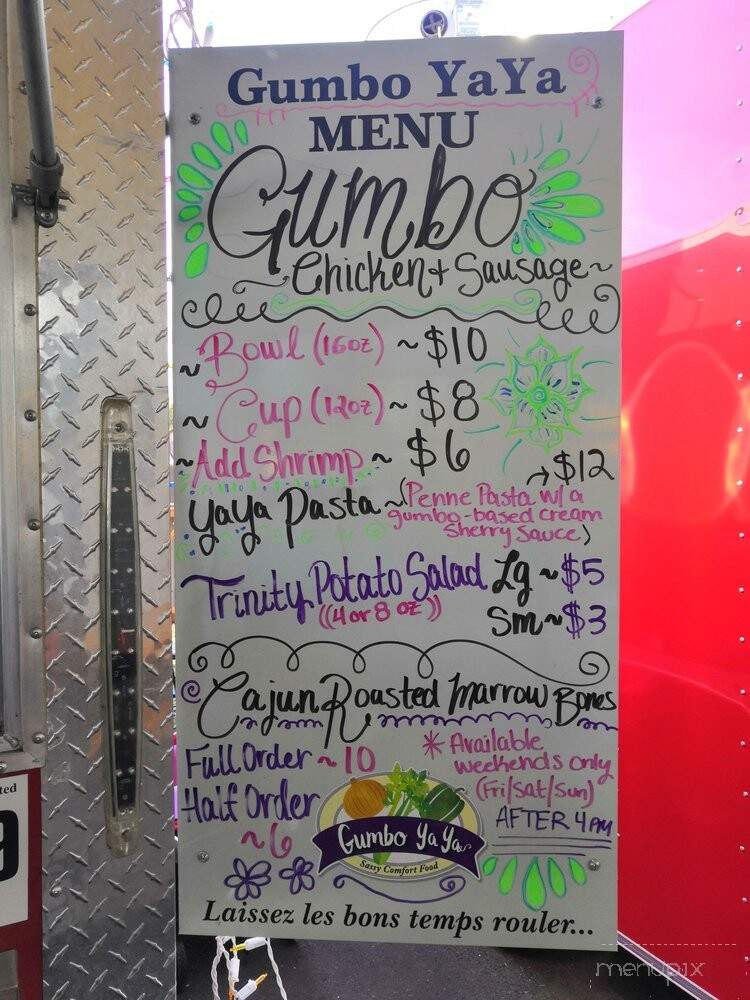 Gumbo YaYa
MENU
Gumbo
Chicken + Sausage~
~Bowl (16oz) ~$10
~Cup (12oz)~ $8
~Add Shrimp~ $6
→$12
YaYa Pasta~(Penne Pasta w/a
gumbo-based cream
Sherry Sauce)
Trinity Potato Salad Lg ~$5
((4 or 8 oz)) Sm~$3
Cajun Roasted Marrow Bones
Full Order ~ 10
Half Order
~6
* Available
weekends only
(Fri/Sat/Sun)
AFTER 4PM
Gumbo YaYa
Sassy Comfort Food
Laissez les bons temps rouler...
ted
9
menupix